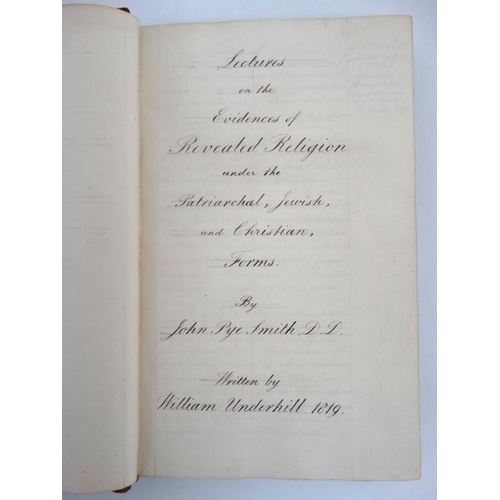 Lectures
on the
Evidences of
Revealed Religion
under the
Patriarchal, Jewish,
and Christian,
Forms.
By
John Pye Smith, D.D.
Written by
William Underhill. 1819.